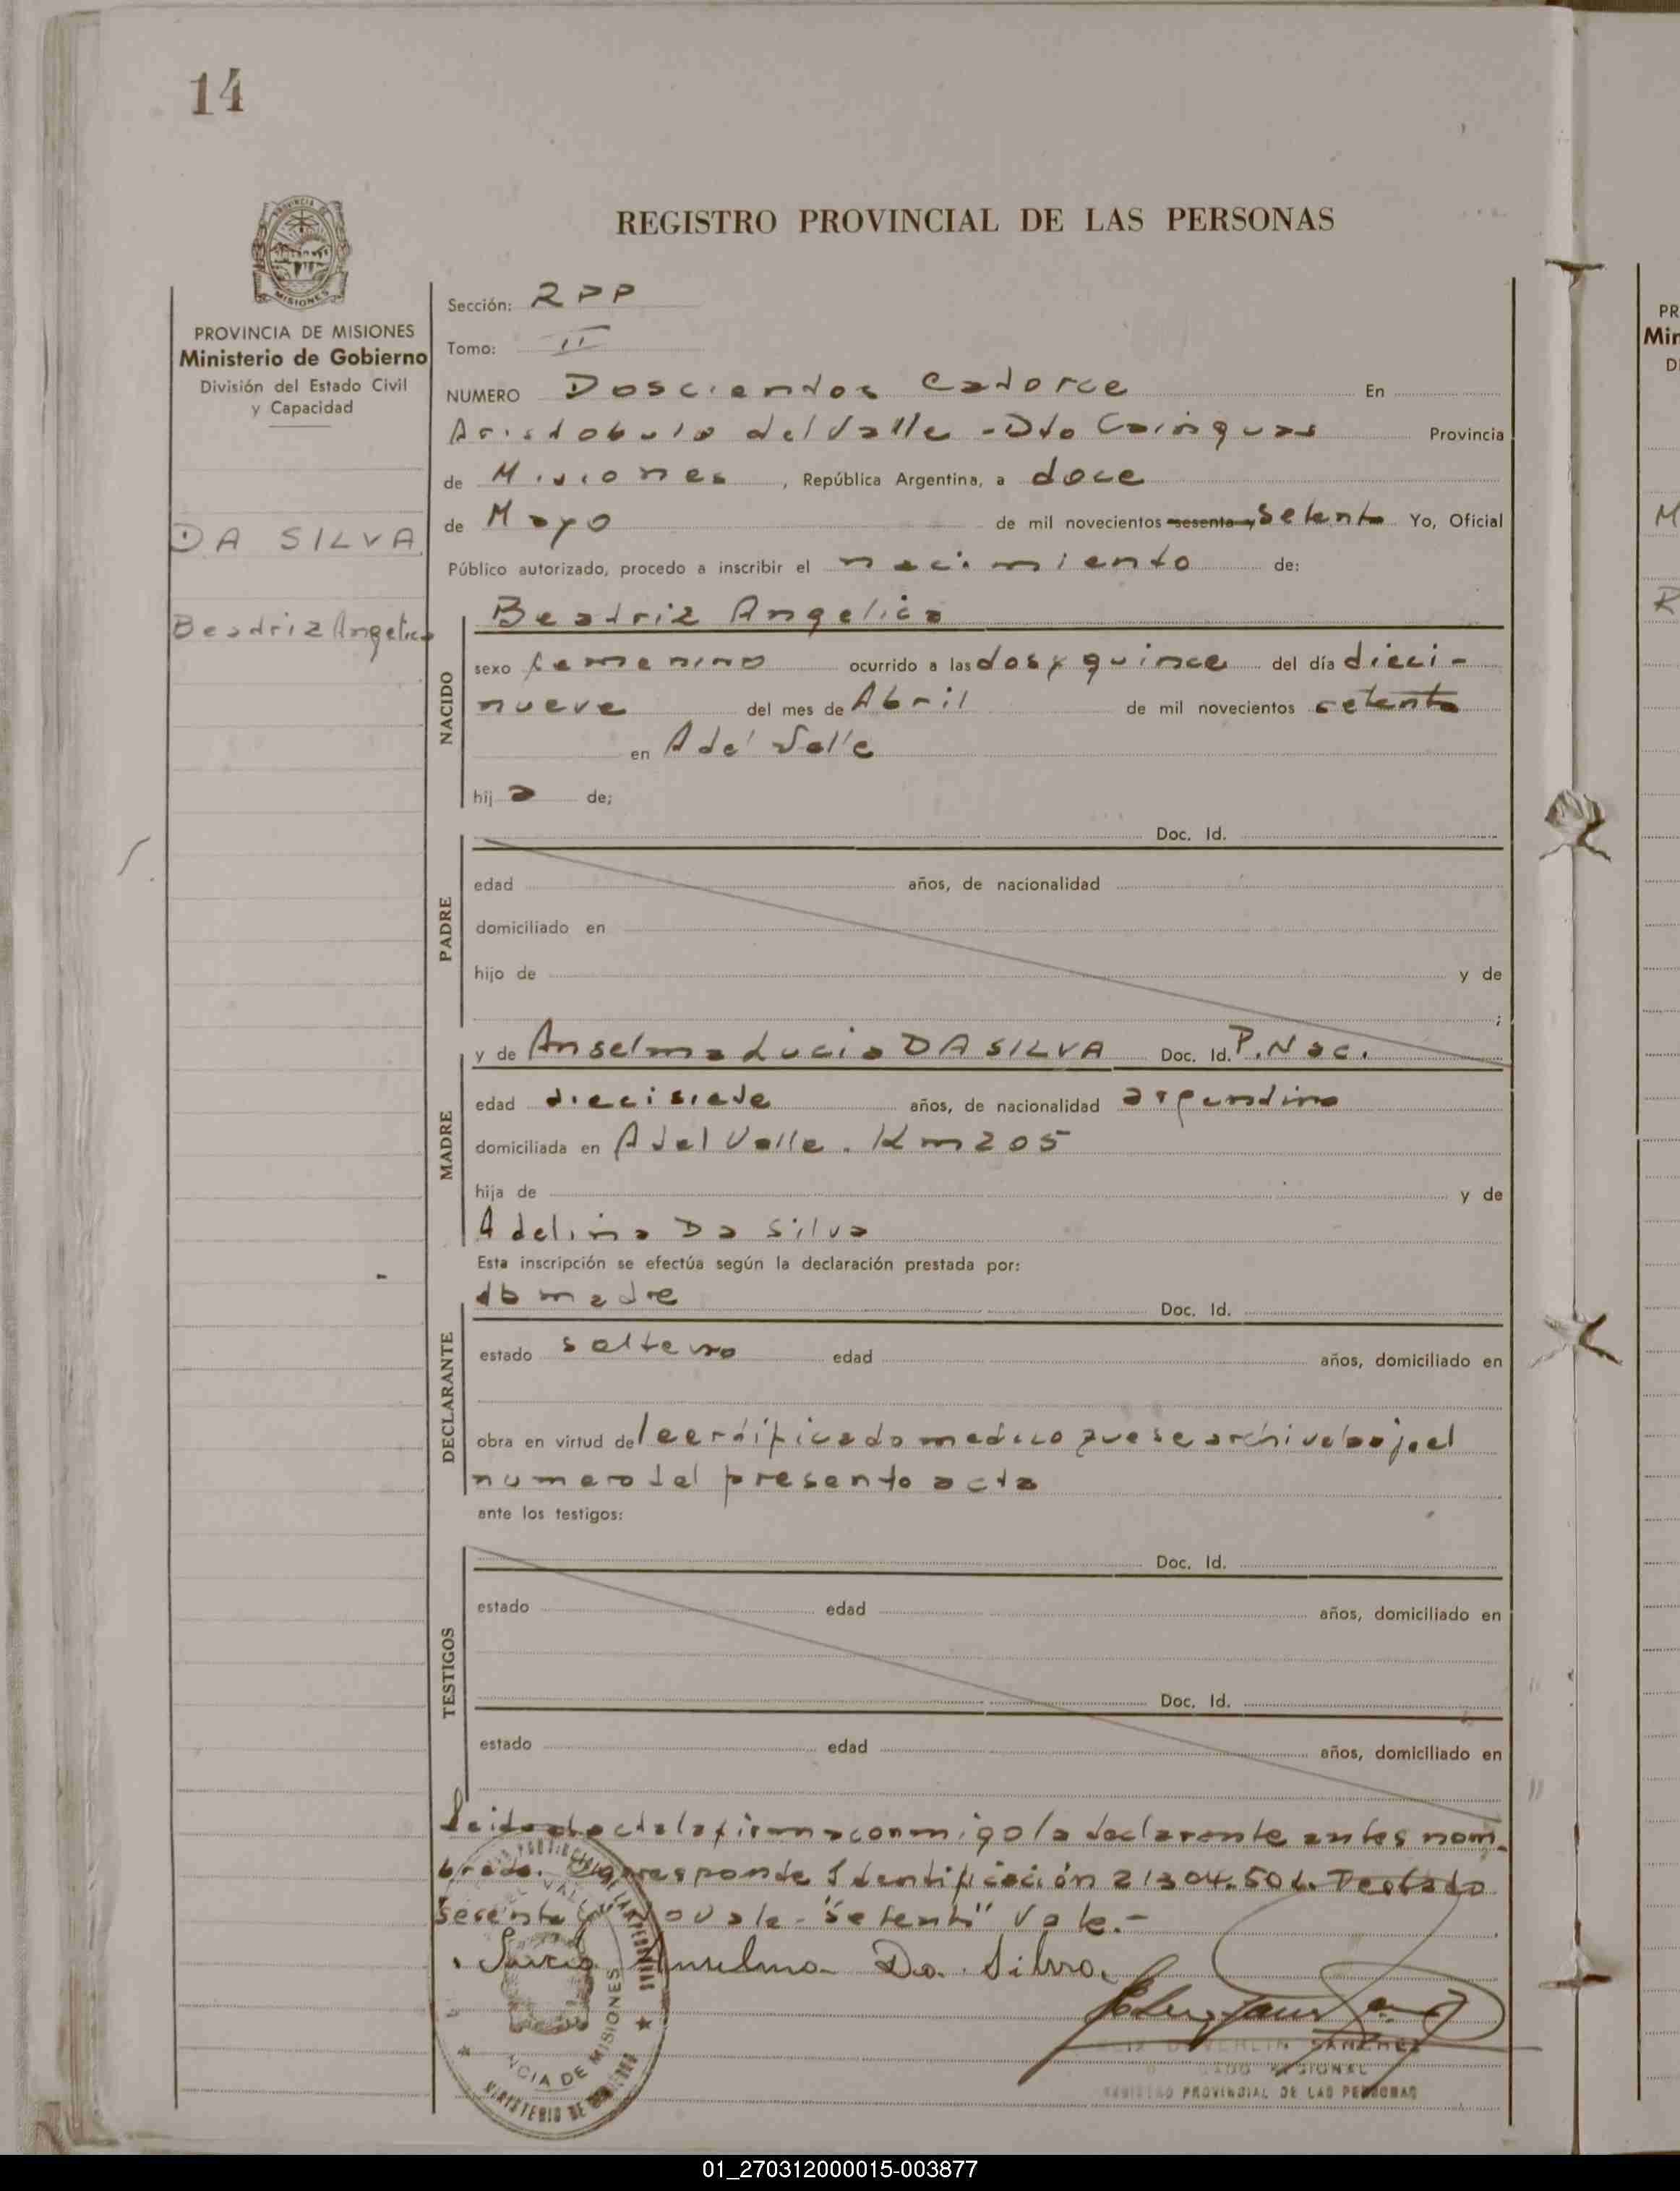 14
REGISTRO PROVINCIAL DE LAS PERSONAS
MISIONES
PROVINCIA DE MISIONES
Ministerio de Gobierno
División del Estado Civil
y Capacidad
DA SILVA
Beatriz Angelica
Sección: RPP
Tomo: II
NUMERO Doscientos Catorce En
Aristobulo del Valle - Dto Cainguas Provincia
de Misiones, República Argentina, a doce
de Mayo de mil novecientos sesenta y Setenta Yo, Oficial
Público autorizado, procedo a inscribir el nacimiento de:
NACIDO
Beatriz Angelica
sexo femenino ocurrido a las dos y quince del día dieci-
nueve del mes de Abril de mil novecientos setenta
en A del Valle
hij a de;
PADRE
Doc. Id.
edad años, de nacionalidad
domiciliado en
hijo de y de
;
MADRE
y de Anselma Lucia DA SILVA Doc. Id. P. Nac.
edad diecisiete años, de nacionalidad argentina
domiciliada en A del Valle. Km 205
hija de y de
Adelina Da Silva
Esta inscripción se efectúa según la declaración prestada por:
DECLARANTE
la madre Doc. Id.
estado soltera edad años, domiciliado en
obra en virtud del certificado medico que se archiva bajo el
numero del presente acta
ante los testigos:
TESTIGOS
Doc. Id.
estado edad años, domiciliado en
Doc. Id.
estado edad años, domiciliado en
Leida el acta la firma conmigo la declarante antes nom-
brada. Corresponde Identificación 21304.501. Testado
sesenta y no vale - "setenta" Vale.-
Lucia Anselma Da Silva.
SANCHEZ
REGIONAL
REGISTRO PROVINCIAL DE LAS PERSONAS
PROVINCIA DE MISIONES
MINISTERIO DE
01_270312000015-003877